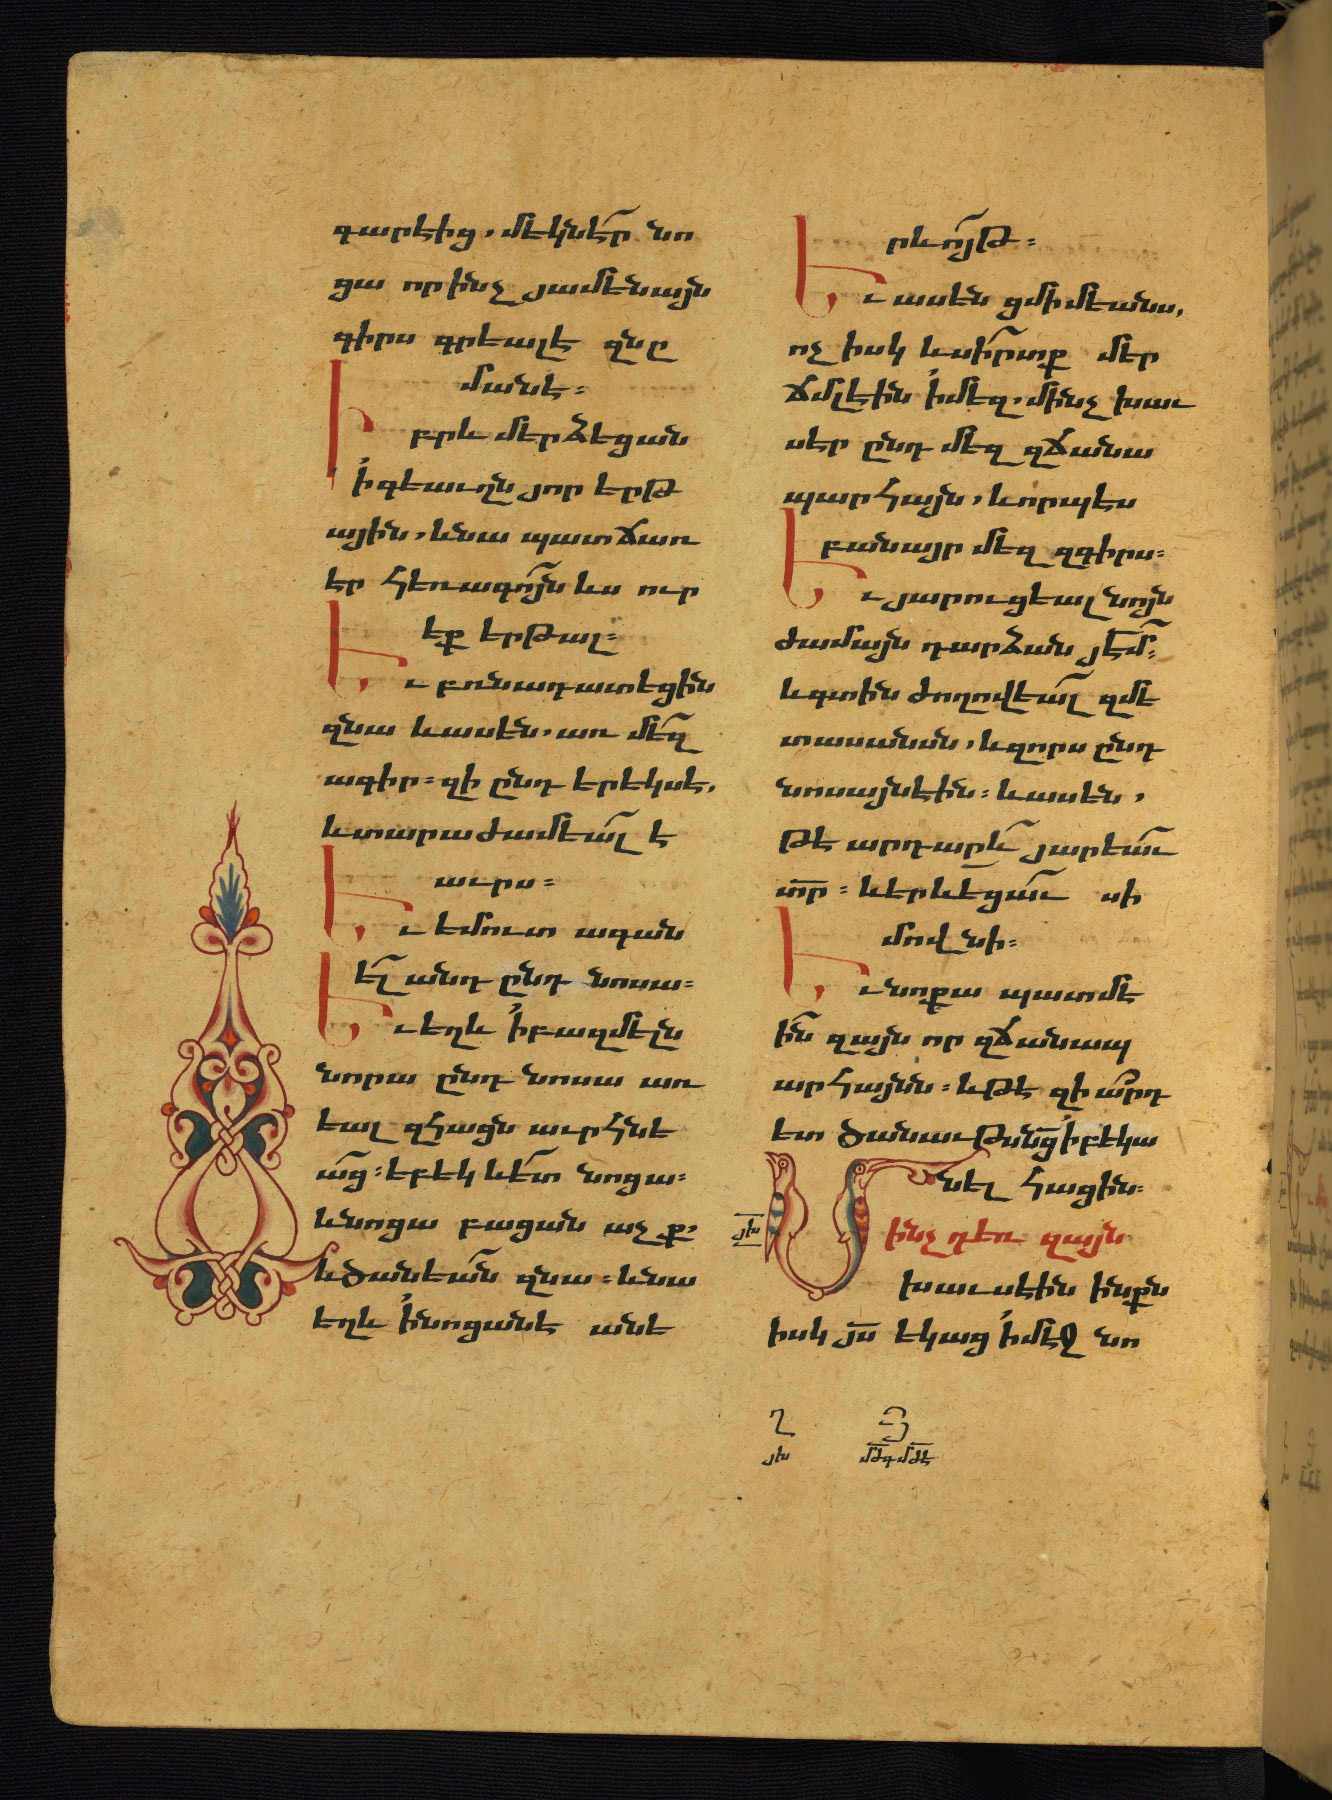 գարէից, մեկնէր նո
ցա որինչ յամենայն
գիրս գրեալէ զնը
մանէ։
Իբրև մերձեցան
ի գեաւղն յոր երթ
ային, ևնա պատճառ
էր հեռագոյն ևս ուր
եք երթալ։
Եւ բռնադատեցին
զնա ևասեն, առ մեզ
ագիր։ զի ընդ երեկսէ,
ևտարաժամեալ է
աւրս։
Եւ եմուտ ագան
ել անդ ընդ նոսա։
Եւ եղև ի բազմելն
նորա ընդ նոսա առ
եալ զհացն աւրհնե
աց։ եբեկ ևետ նոցա։
ևնոցա բացան աչք,
ևծանեան զնա։ ևնա
եղև ի նոցանէ աներ
ևոյթ։
Եւ ասեն ցմիմեանս,
ոչ իսկ ևսիրտք մեր
ճմլէին ի մեզ, մինչ խաւ
սէր ընդ մեզ զճանա
պարհայն, ևորպէս
բանայր մեզ զգիրս։
Եւ յարուցեալ նոյն
ժամայն դարձան յԷՄ։
ևգտին ժողովեալ զմե
տասանսն, ևզորս ընդ
նոսայնէին։ ևասեն,
թէ արդարև յարեաւ
տր։ ևերևեցաւ սի
մովնի։
Եւ նոքա պատմե
ին զայն որ զճանապ
արհայնն։ ևթէ զիարդ
ետ ծանաւթսնց ի բեկա
նել հացին։
յխ
Մինչ դեռ զայն
խաւսէին ինքն
իսկ յս եկաց ի մէջ նո